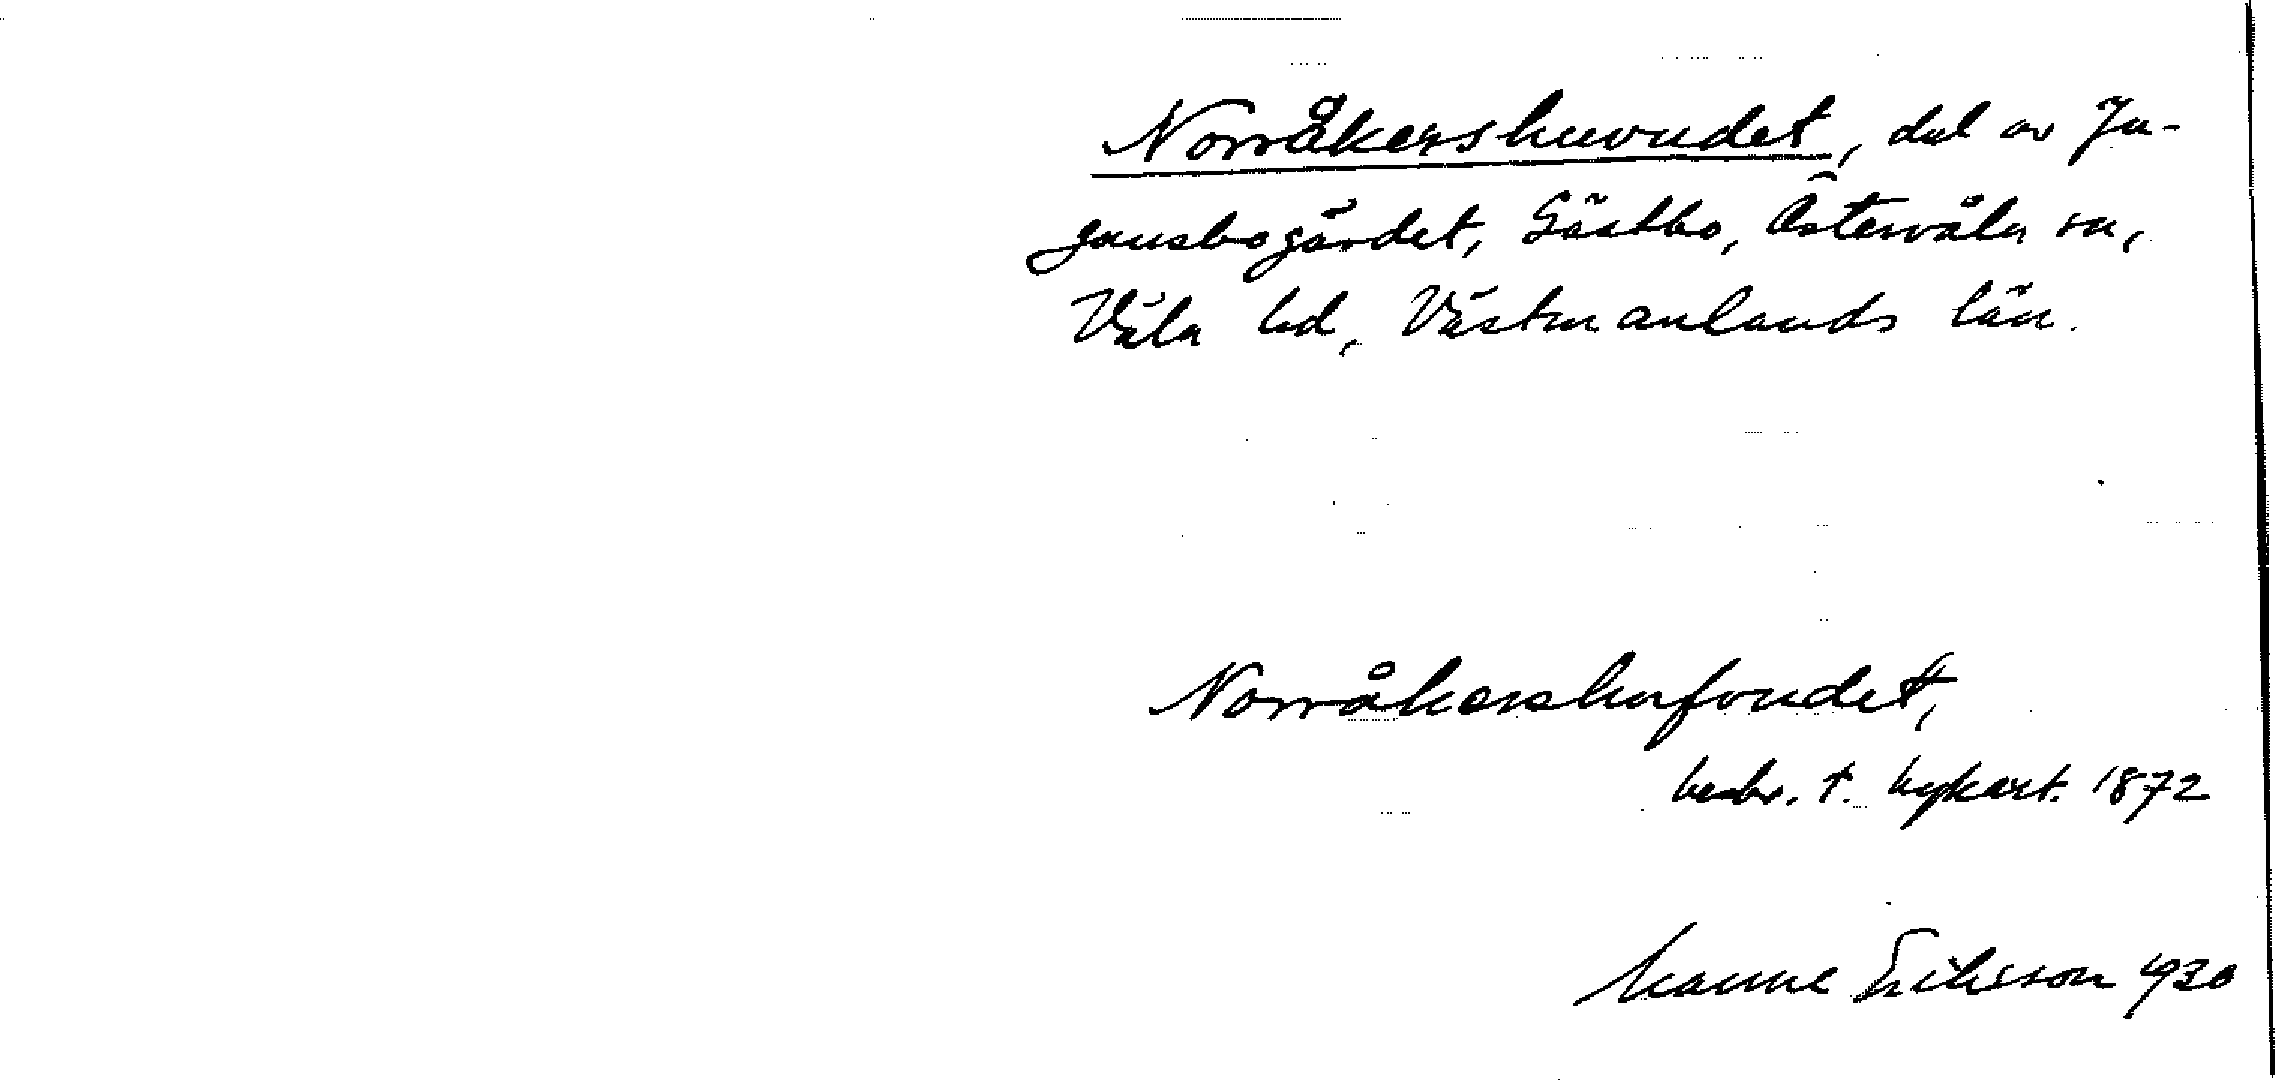 Norråkershuvudet, del av In-
gansbogärdet, Gästbo, Östervåla sn,
Våla hd, Västmanlands län.
Norråkershufvudet,
beskr. t. hykart. 1872
Manne Eriksson 1930